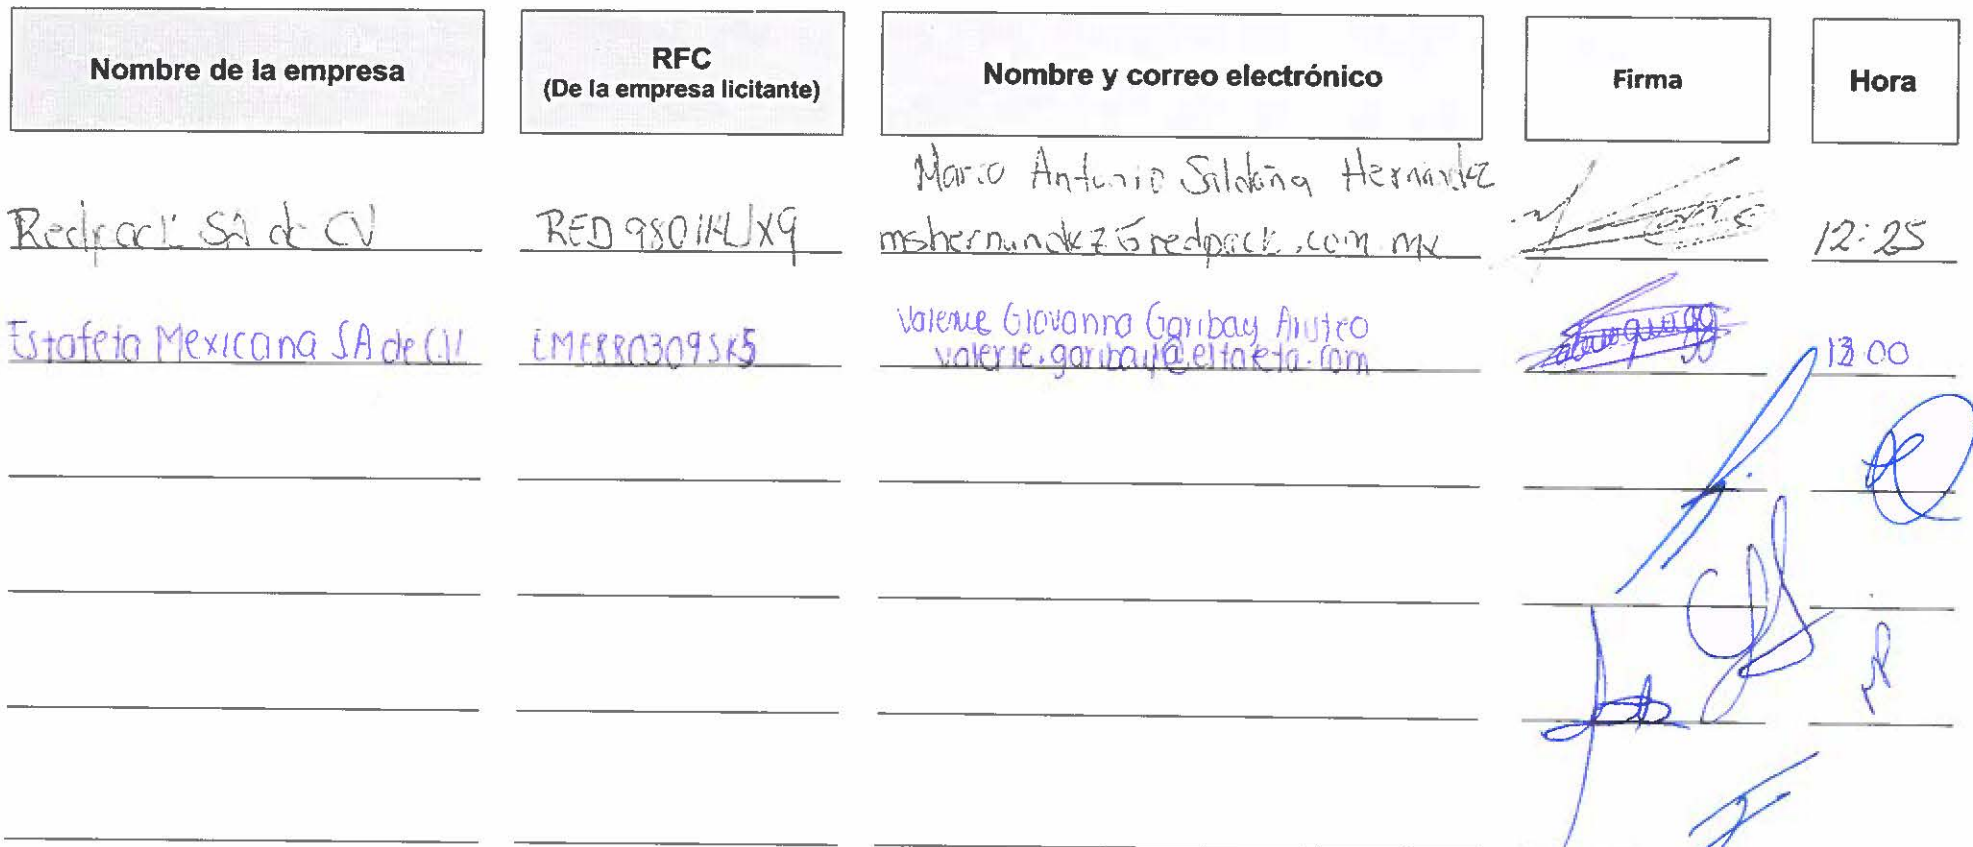 Nombre de la empresa
RFC
(De la empresa licitante)
Nombre y correo electrónico
Firma
Hora
Mario Antonio Saldaña Hernandez
Redpack SA de CV
mshernandez@redpack.com.mx
12:25
Estafeta Mexicana SA de CV
EME880309SK5
Valerie Giovanna Garibay
valerie.garibay@estafeta.com
13:00